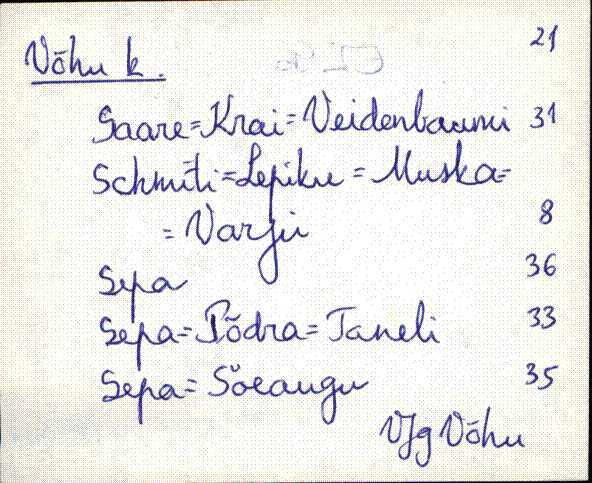 21
Võhu k.
Saare=Krai=Veidenbaumi 31
Schmiti=Lepiku=Muska=
=Varju 8
Sepa 36
Sepa=Põdra=Taneli 33
Sepa=Söeaugu 35
VJg Võhu